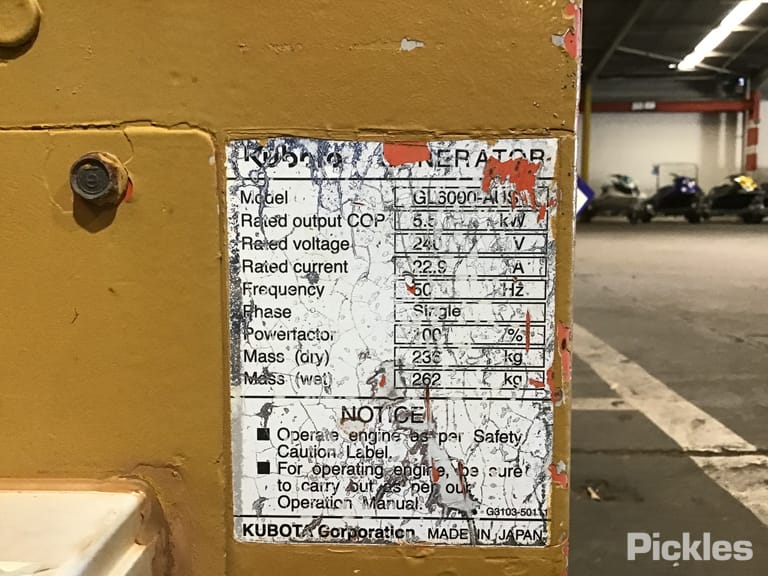 Kubota GENERATOR
Model GL6000-AUS
Rated output COP 5.5 kW
Rated voltage 240 V
Rated current 22.9 A
Frequency 50 Hz
Phase Single
Powerfactor 100 %
Mass (dry) 236 kg
Mass (wet) 262 kg
NOTICE
■ Operate engine as per Safety
Caution Label.
■ For operating engine, be sure
to carry out as per our
Operation Manual.
KUBOTA Corporation MADE IN JAPAN
Pickles